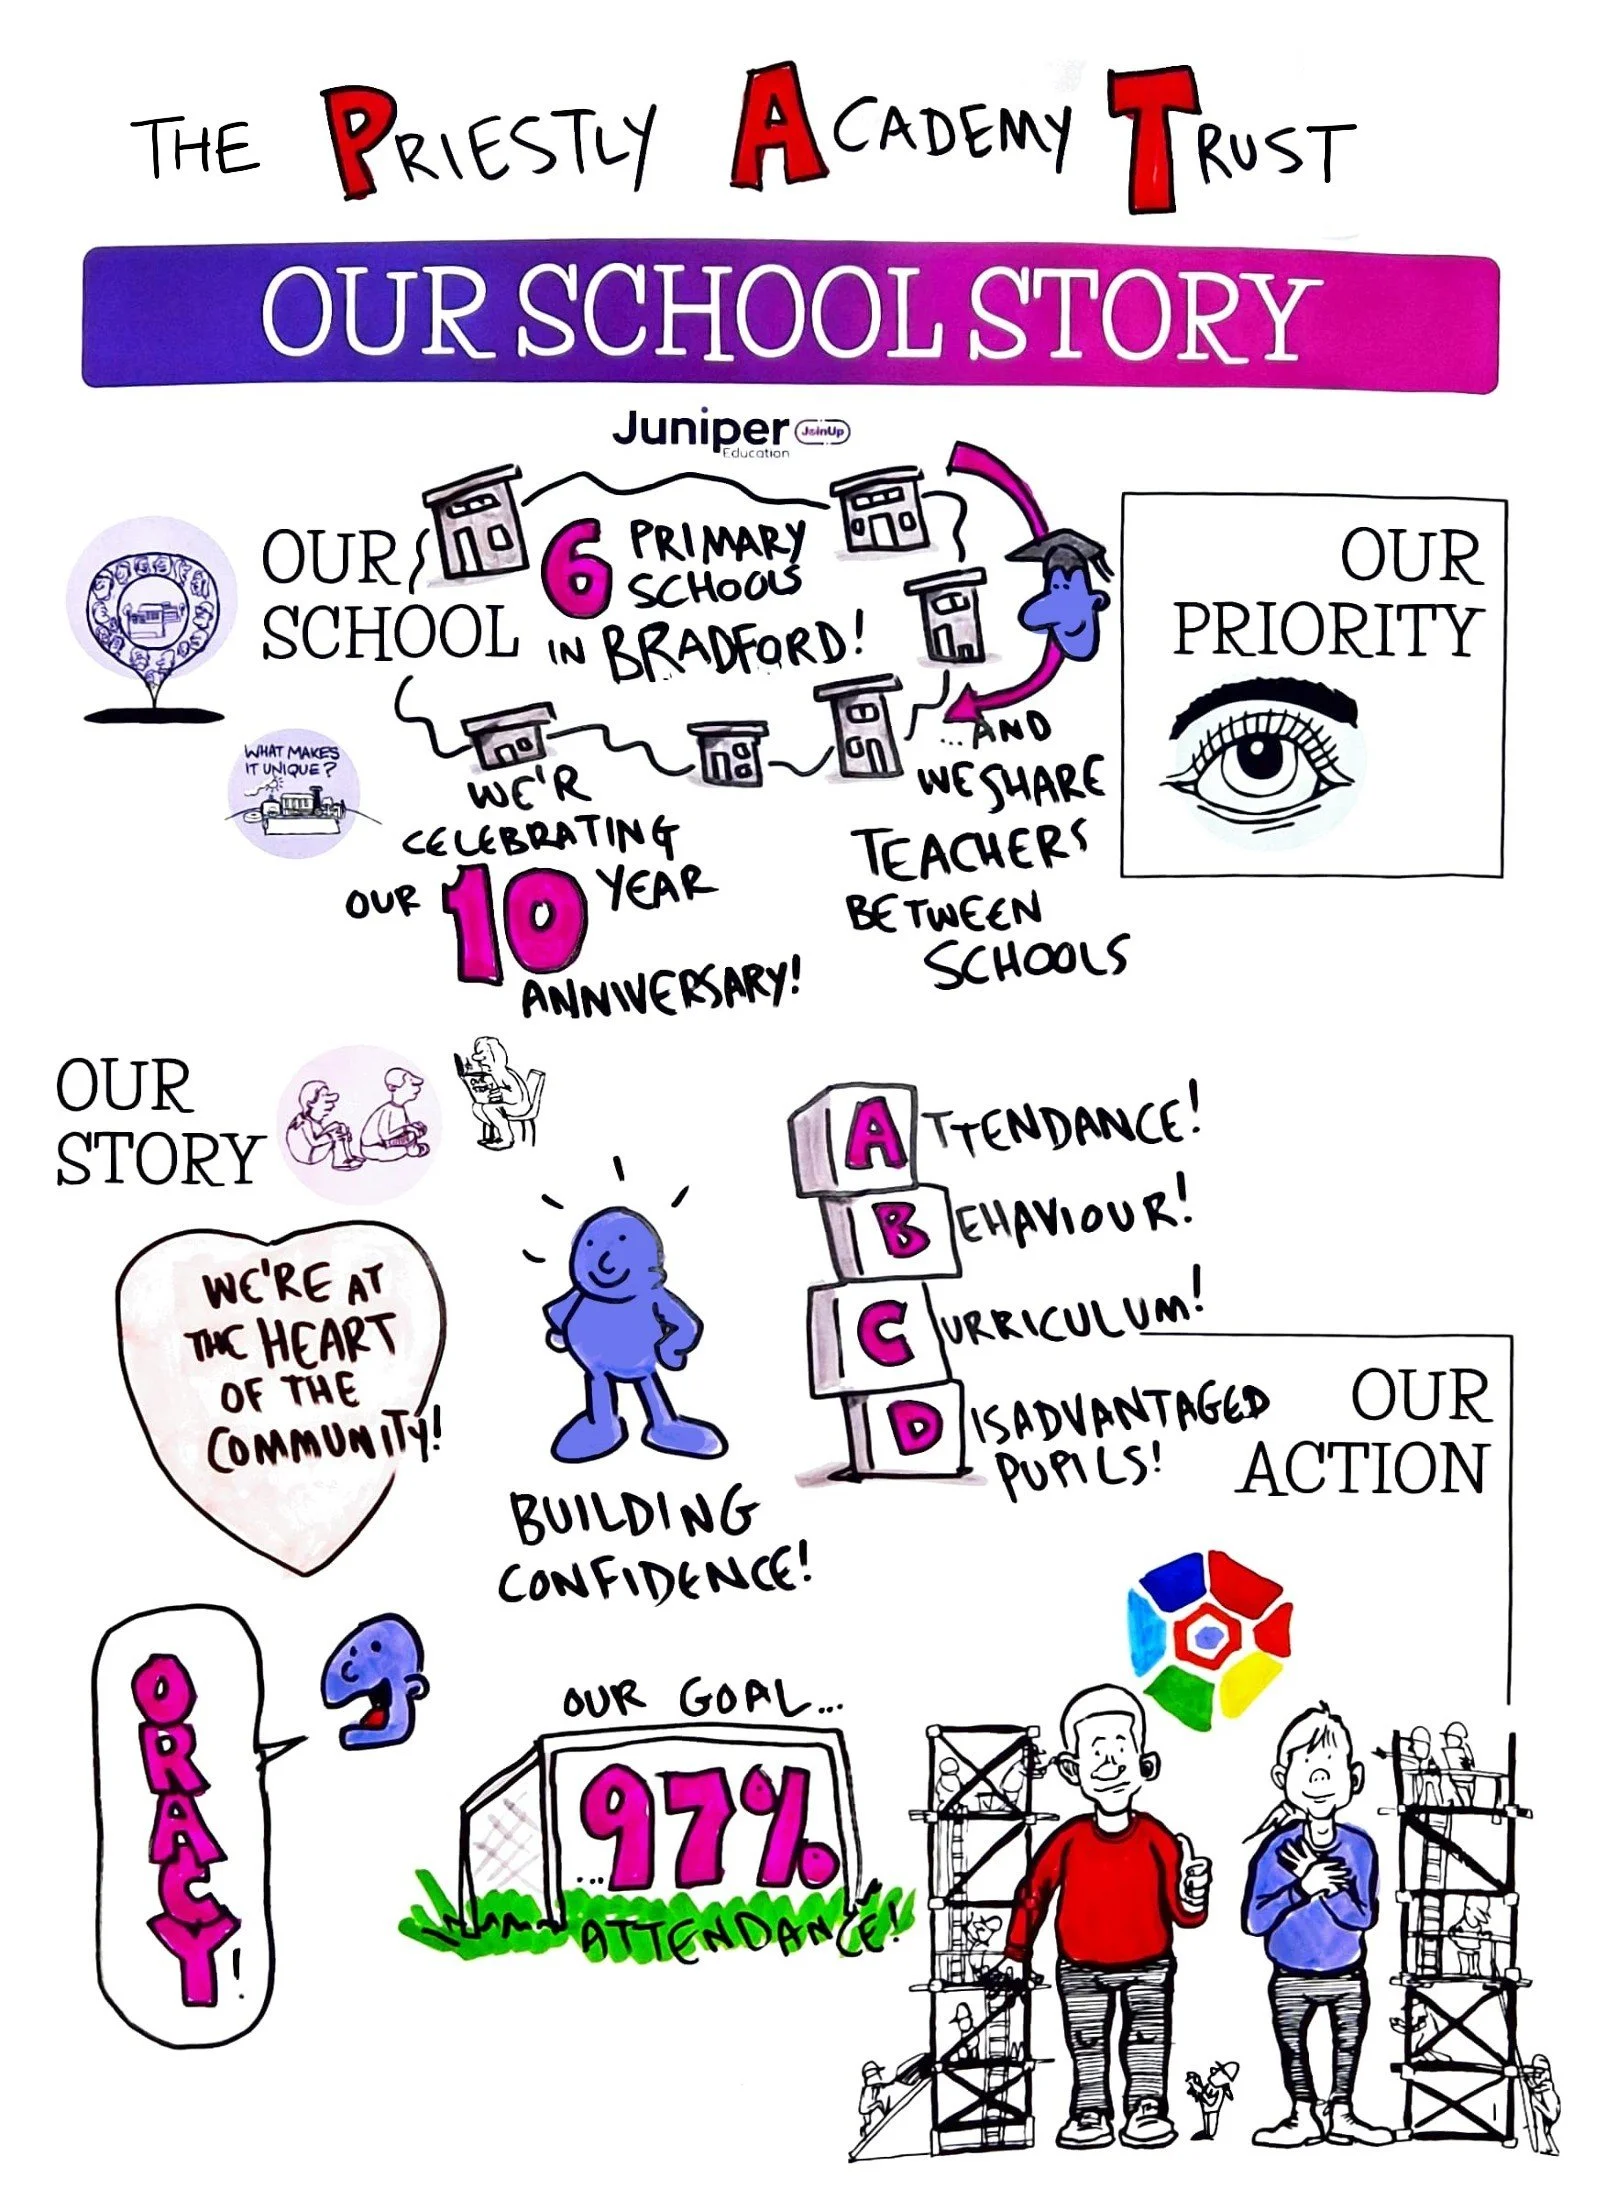 THE PRIESTLY ACADEMY TRUST
OUR SCHOOL STORY
Juniper JoinUp
Education
OUR
SCHOOL
6 PRIMARY
SCHOOLS
IN BRADFORD!
WHAT MAKES
IT UNIQUE?
WE'R
CELEBRATING
OUR 10 YEAR
ANNIVERSARY!
...AND
WE SHARE
TEACHERS
BETWEEN
SCHOOLS
OUR
PRIORITY
OUR
STORY
WE'RE AT
THE HEART
OF THE
COMMUNITY!
BUILDING
CONFIDENCE!
ATTENDANCE!
BEHAVIOUR!
CURRICULUM!
DISADVANTAGED
PUPILS!
OUR
ACTION
ORACY!
OUR GOAL...
...97%
ATTENDANCE!